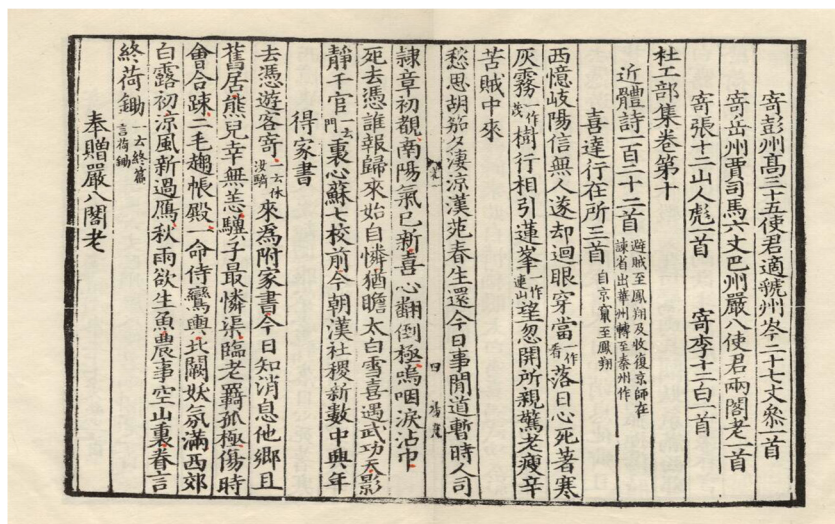 寄彭州高三十五使君適虢州岑二十七丈參一首
寄岳州賈司馬六丈巴州嚴八使君兩閣老一首
寄張十二山人彪一首 寄李十二白一首
杜工部集卷第十
近體詩一百二十二首 避賊至鳳翔及收復京師在諫省出華州轉至秦州作
喜達行在所三首 自京竄至鳳翔
西憶岐陽信無人遂却迴眼穿當一作看落日心死著寒
灰霧一作茂樹行相引蓮峯一作連山望忽開所親驚老瘦辛
苦賊中來
愁思胡笳夕淒涼漢苑春生還今日事間道暫時人司
隷章初覩南陽氣已新喜心翻倒極嗚咽淚沾巾
四
死去憑誰報歸來始自憐猶瞻太白雪喜遇武功天影
靜千官一云門裏心蘇七校前今朝漢社稷新數中興年
得家書
去憑遊客寄一云休汝騎來爲附家書今日知消息他鄉且
舊居熊兒幸無恙驥子最憐渠臨老羇孤極傷時
會合踈二毛趨帳殿一命侍鸞輿北闕妖氛滿西郊
白露初涼風新過鴈秋雨欲生魚農事空山裏眷言
終荷鋤一云終篇言荷鋤
奉贈嚴八閣老